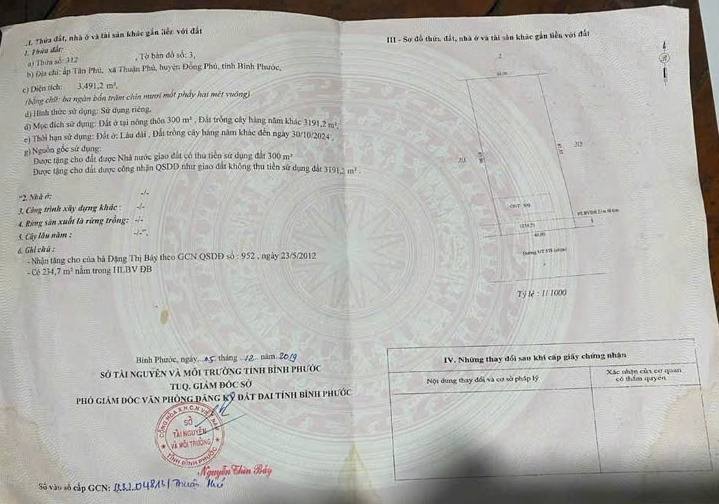 II. Thửa đất, nhà ở và tài sản khác gắn liền với đất
1. Thửa đất:
a) Thửa số: 312 , Tờ bản đồ số: 3,
b) Địa chỉ: ấp Tân Phú, xã Thuận Phú, huyện Đồng Phú, tỉnh Bình Phước,
c) Diện tích: 3.491,2 m²,
(bằng chữ: ba ngàn bốn trăm chín mươi mốt phẩy hai mét vuông)
d) Hình thức sử dụng: Sử dụng riêng,
đ) Mục đích sử dụng: Đất ở tại nông thôn 300 m², Đất trồng cây hàng năm khác 3191,2 m²,
e) Thời hạn sử dụng: Đất ở: Lâu dài, Đất trồng cây hàng năm khác đến ngày 30/10/2024,
g) Nguồn gốc sử dụng:
Được tặng cho đất được Nhà nước giao đất có thu tiền sử dụng đất 300 m²
Được tặng cho đất được công nhận QSDĐ như giao đất không thu tiền sử dụng đất 3191,2 m².
2. Nhà ở: -/-
3. Công trình xây dựng khác: -/-
4. Rừng sản xuất là rừng trồng: -/-
5. Cây lâu năm: -/-
6. Ghi chú:
- Nhận tặng cho của bà Đặng Thị Bảy theo GCN QSDĐ số: 952, ngày 23/5/2012
- Có 234,7 m² nằm trong HLBV ĐB
Bình Phước, ngày 05 tháng 12 năm 2019
SỞ TÀI NGUYÊN VÀ MÔI TRƯỜNG TỈNH BÌNH PHƯỚC
TUQ. GIÁM ĐỐC SỞ
PHÓ GIÁM ĐỐC VĂN PHÒNG ĐĂNG KÝ ĐẤT ĐAI TỈNH BÌNH PHƯỚC
CỘNG HÒA X.H.C.N VIỆT NAM
SỞ
TÀI NGUYÊN
VÀ MÔI TRƯỜNG
TỈNH BÌNH PHƯỚC
Nguyễn Thìn Bảy
Số vào sổ cấp GCN: Thuận Phú
III - Sơ đồ thửa đất, nhà ở và tài sản khác gắn liền với đất
313
Tỷ lệ: 1/1000
IV. Những thay đổi sau khi cấp giấy chứng nhận
Nội dung thay đổi và cơ sở pháp lý
Xác nhận của cơ quan
có thẩm quyền